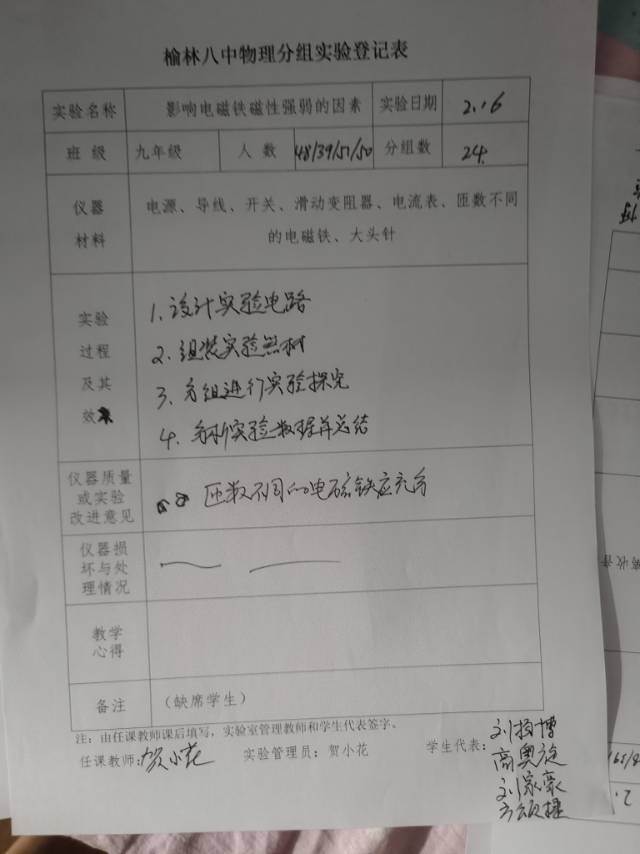 榆林八中物理分组实验登记表
实验名称 影响电磁铁磁性强弱的因素 实验日期 2.16
班 级 九年级 人 数 48/39/51/50 分组数 24.
仪器
材料
电源、导线、开关、滑动变阻器、电流表、匝数不同
的电磁铁、大头针
实验
过程
及其
效果
1.设计实验电路
2.组装实验器材
3.分组进行实验探究
4.分析实验数据并总结
仪器质量
或实验
改进意见
匝数不同的电磁铁应充分
仪器损
坏与处
理情况
教学
心得
备注 (缺席学生)
注:由任课教师课后填写,实验室管理教师和学生代表签字。
任课教师:贺小花 实验管理员:贺小花 学生代表:
高奥旋
刘家豪
方颂捷